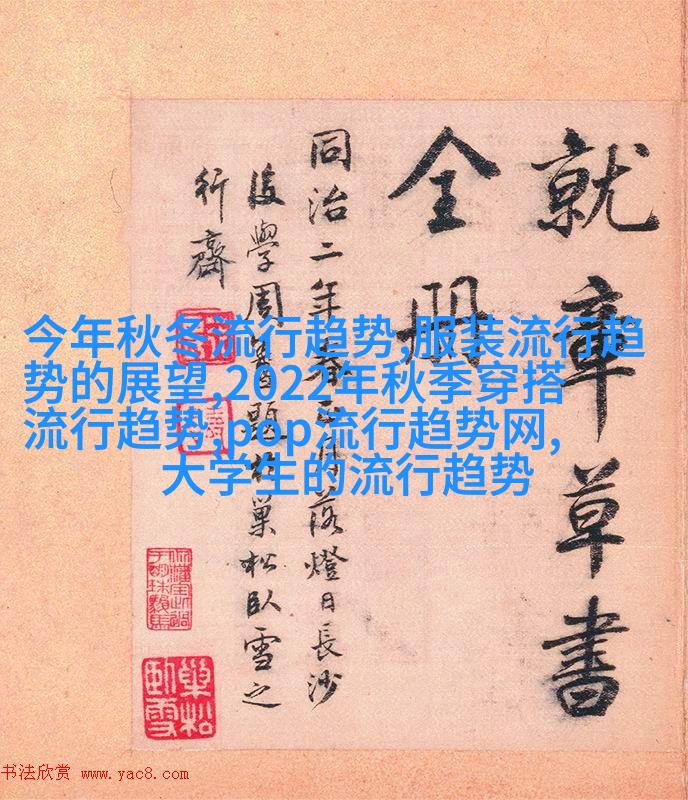 就章草書
全册
同治二年春正月落燈日長沙
後學周題於巢松臥雪之
行齋
今年秋冬流行趋势,服装流行趋
势的展望,2022年秋季穿搭
流行趋势,pop流行趋势网,
大学生的流行趋势
巢松
臥雪
书法欣赏 www.yac8.com